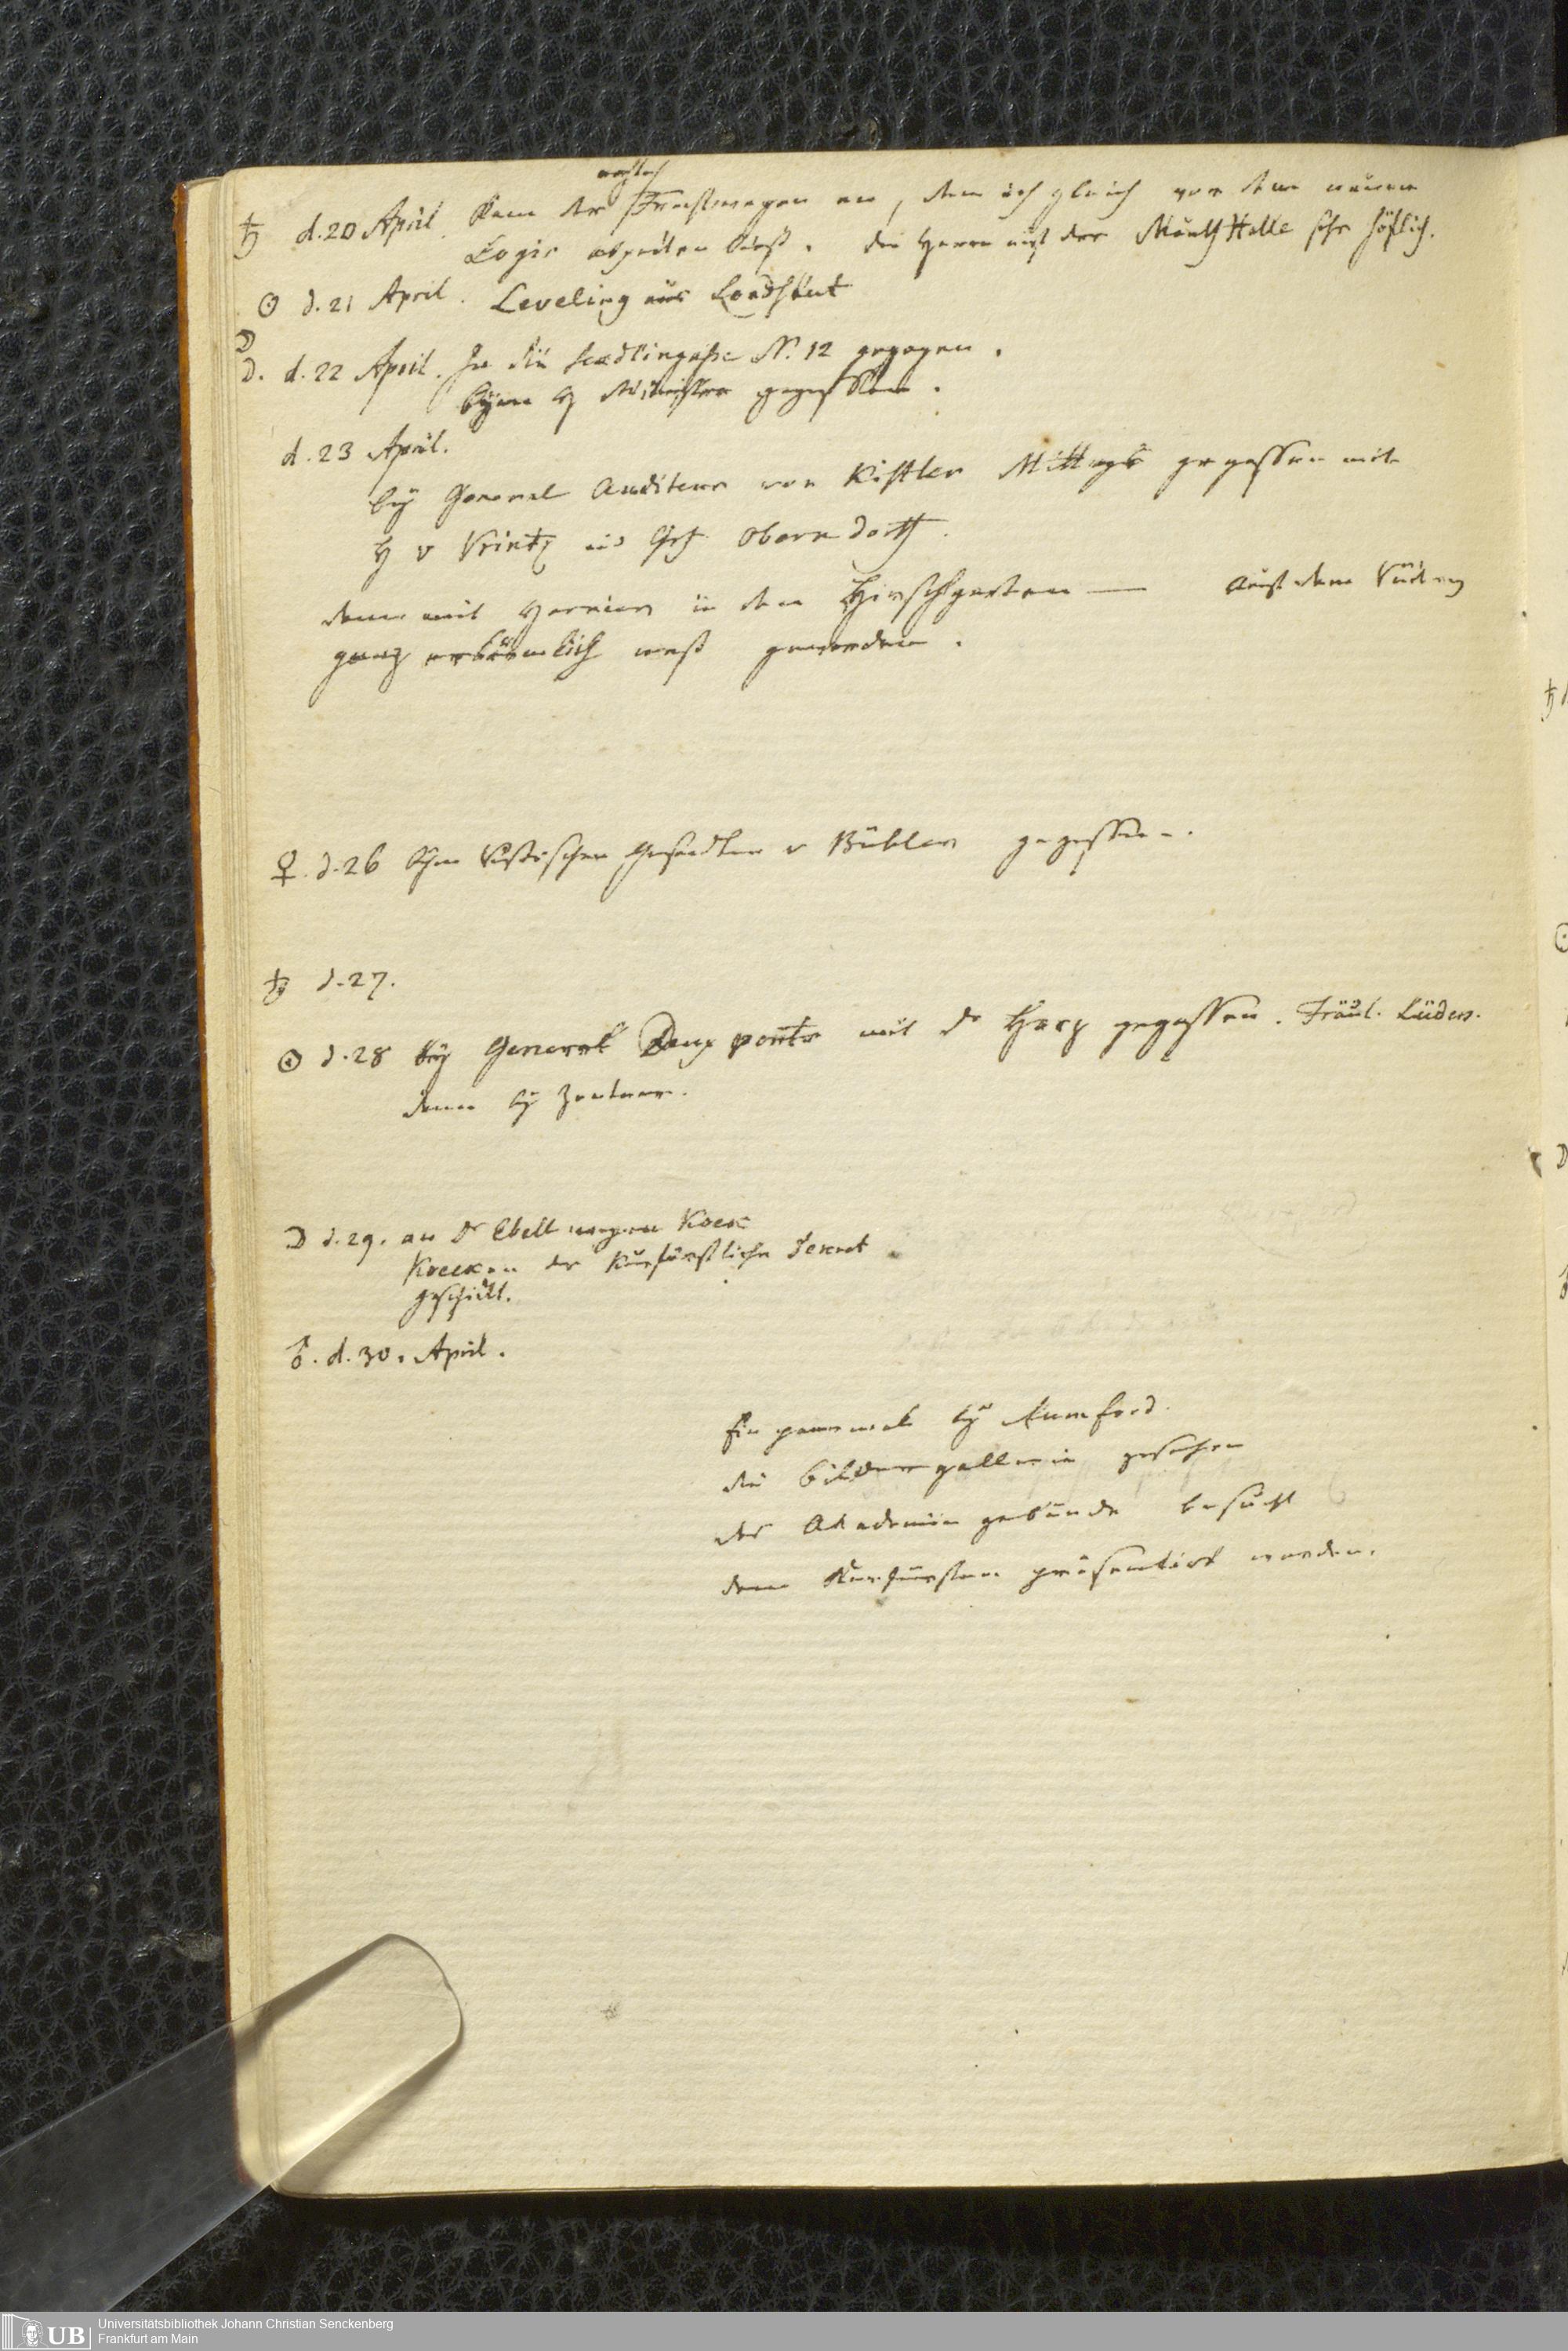 endlich
♄ d. 20 April. Kam der Frachtwagen an, den ich gleich vor dem neuen
Logis abpacken ließ. die Herrn auf der Mauth Halle sehr höflich.
☉ d. 21 April. Leveling aus Landshut
☽
d. d. 22 April. In die Sendlingasse N. 12 gezogen.
beym H Minister gegessen.
d. 23 April.
bey General Auditeur von Kistler Mittags gegessen mit
H v Vrintz und Oberndorff.
dann mit Herrien in den Hirschgarten — auf dem
ganz erbärmlich naß geworden.
♀. d. 26 beym Russischen Gesandten v Bühler gegessen.
♄ d. 27.
☉ d. 28 bey General Deux ponts mit Dr Harz gegessen. Fräul. Lüder.
dann bey Zentner.
☽ d. 29. an Dr Ebell wegen Koeck
Koecken das Kurfürstliche Decret
geschickt.
♂. d. 30. April.
Ein paarmal bey Rumford.
die bildergallerie gesehen
das Akademie gebäude besucht
dem Kurfürsten präsentirt worden.
Universitätsbibliothek Johann Christian Senckenberg
Frankfurt am Main
UB